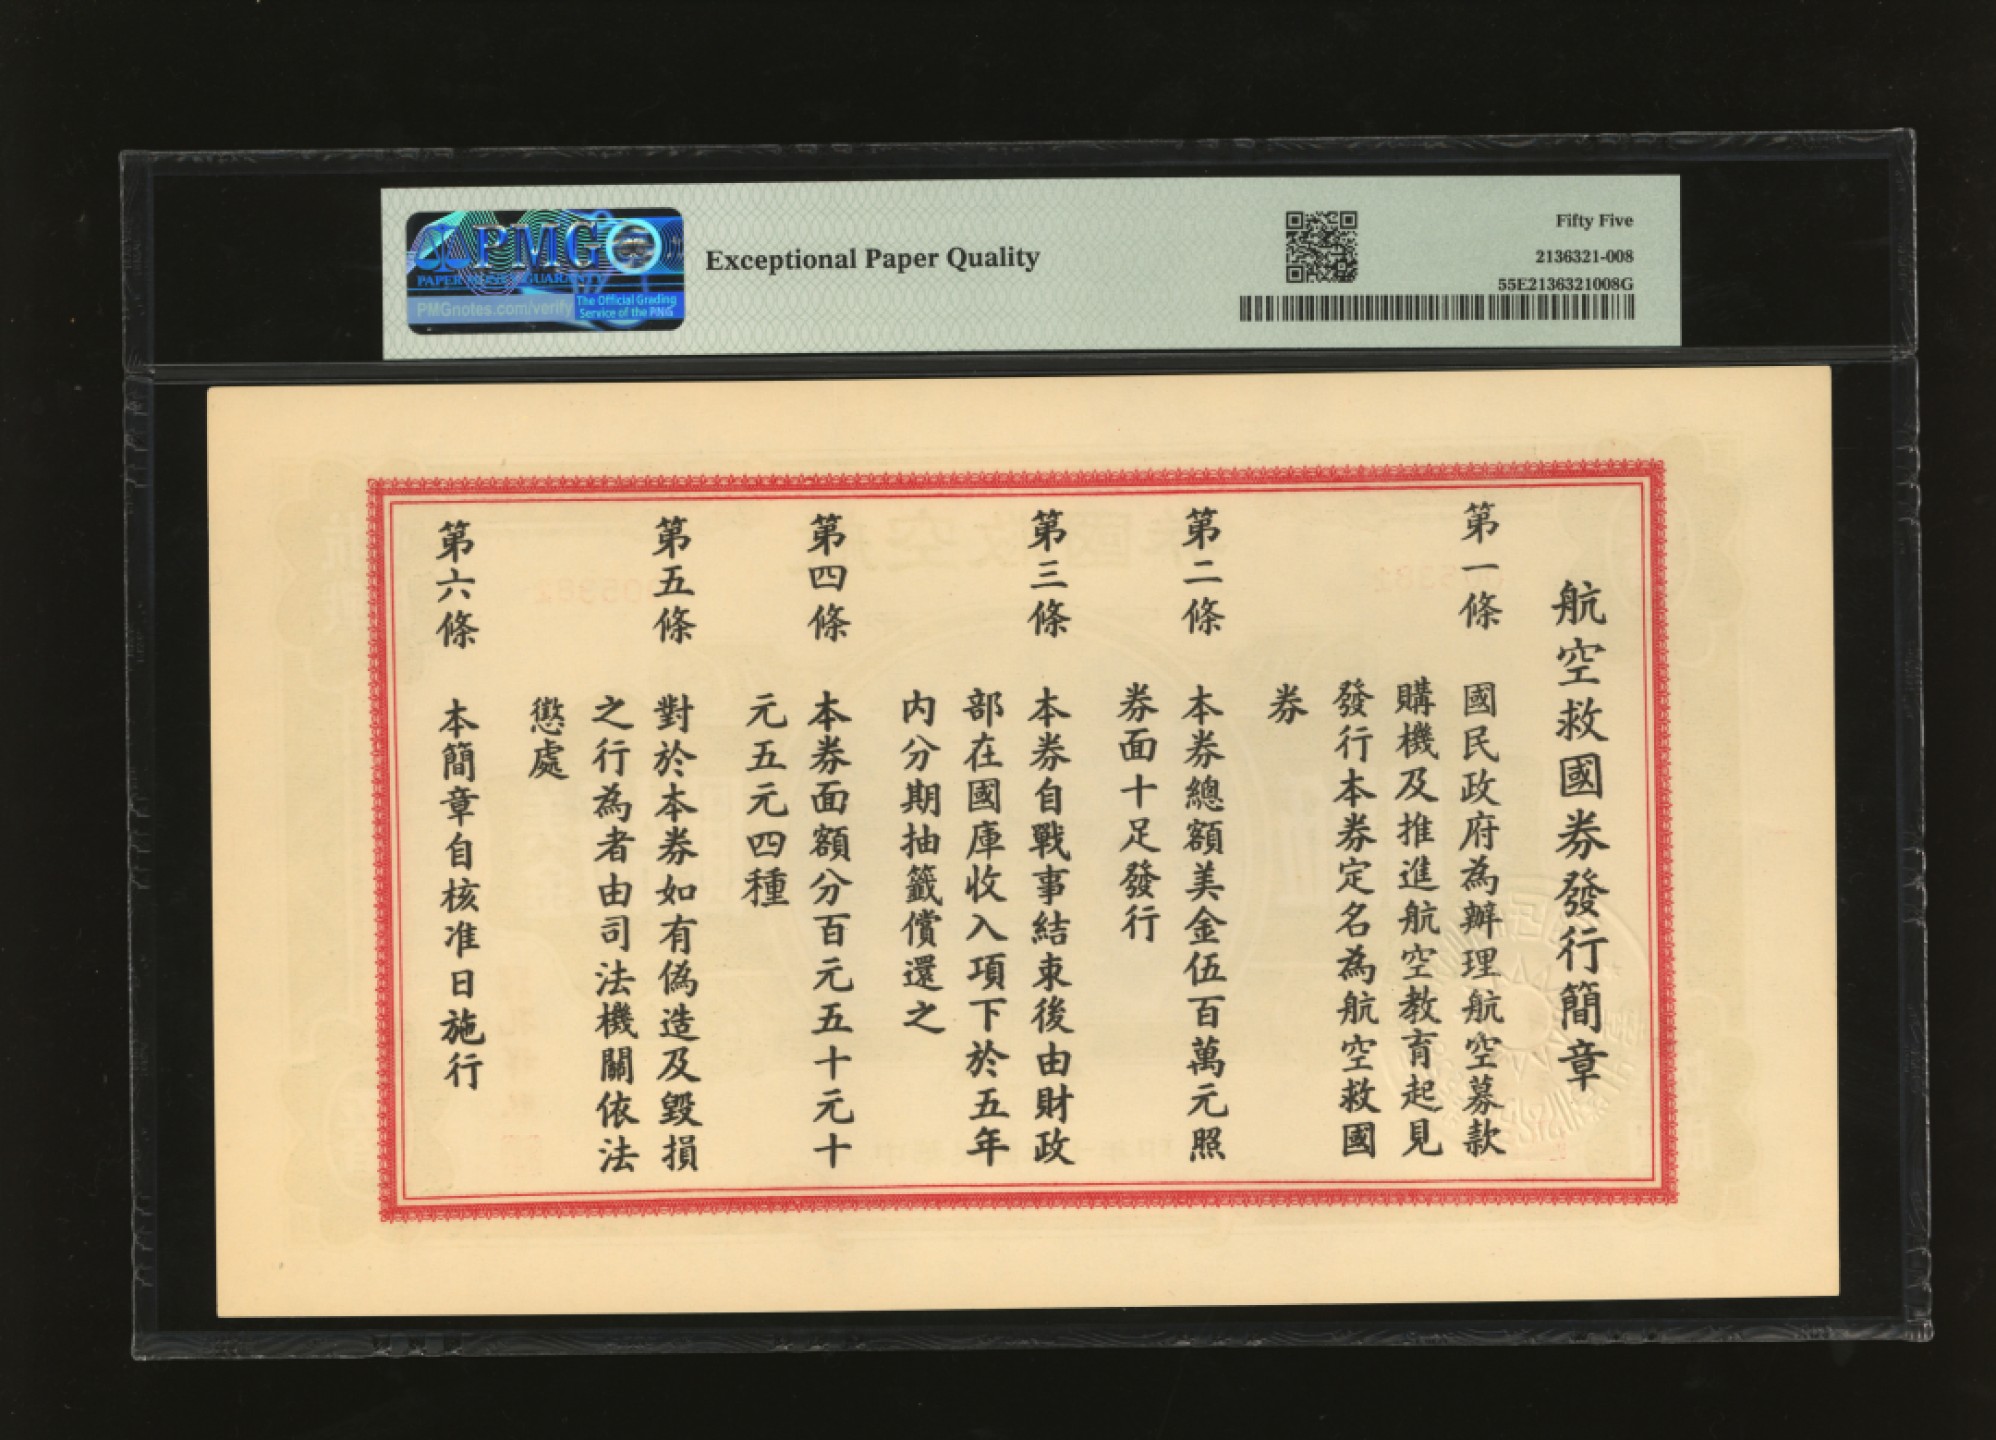 PMG
PAPER MONEY GUARANTY
PMGnotes.com/verify
The Official Grading
Service of the PNG
Exceptional Paper Quality
Fifty Five
2136321-008
55E2136321008G
航空救國券發行簡章
第一條 國民政府為辦理航空募款
購機及推進航空教育起見
發行本券定名為航空救國
券
第二條 本券總額美金伍百萬元照
券面十足發行
第三條 本券自戰事結束後由財政
部在國庫收入項下於五年
內分期抽籤償還之
第四條 本券面額分百元五十元十
元五元四種
第五條 對於本券如有偽造及毀損
之行為者由司法機關依法
懲處
第六條 本簡章自核准日施行